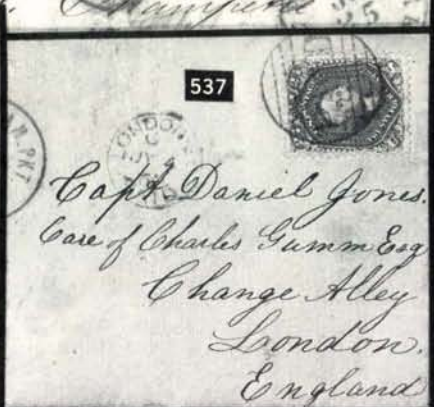 537
LONDON
Capt. Daniel Jones.
Care of Charles Gumm Esq
Change Alley
London.
England